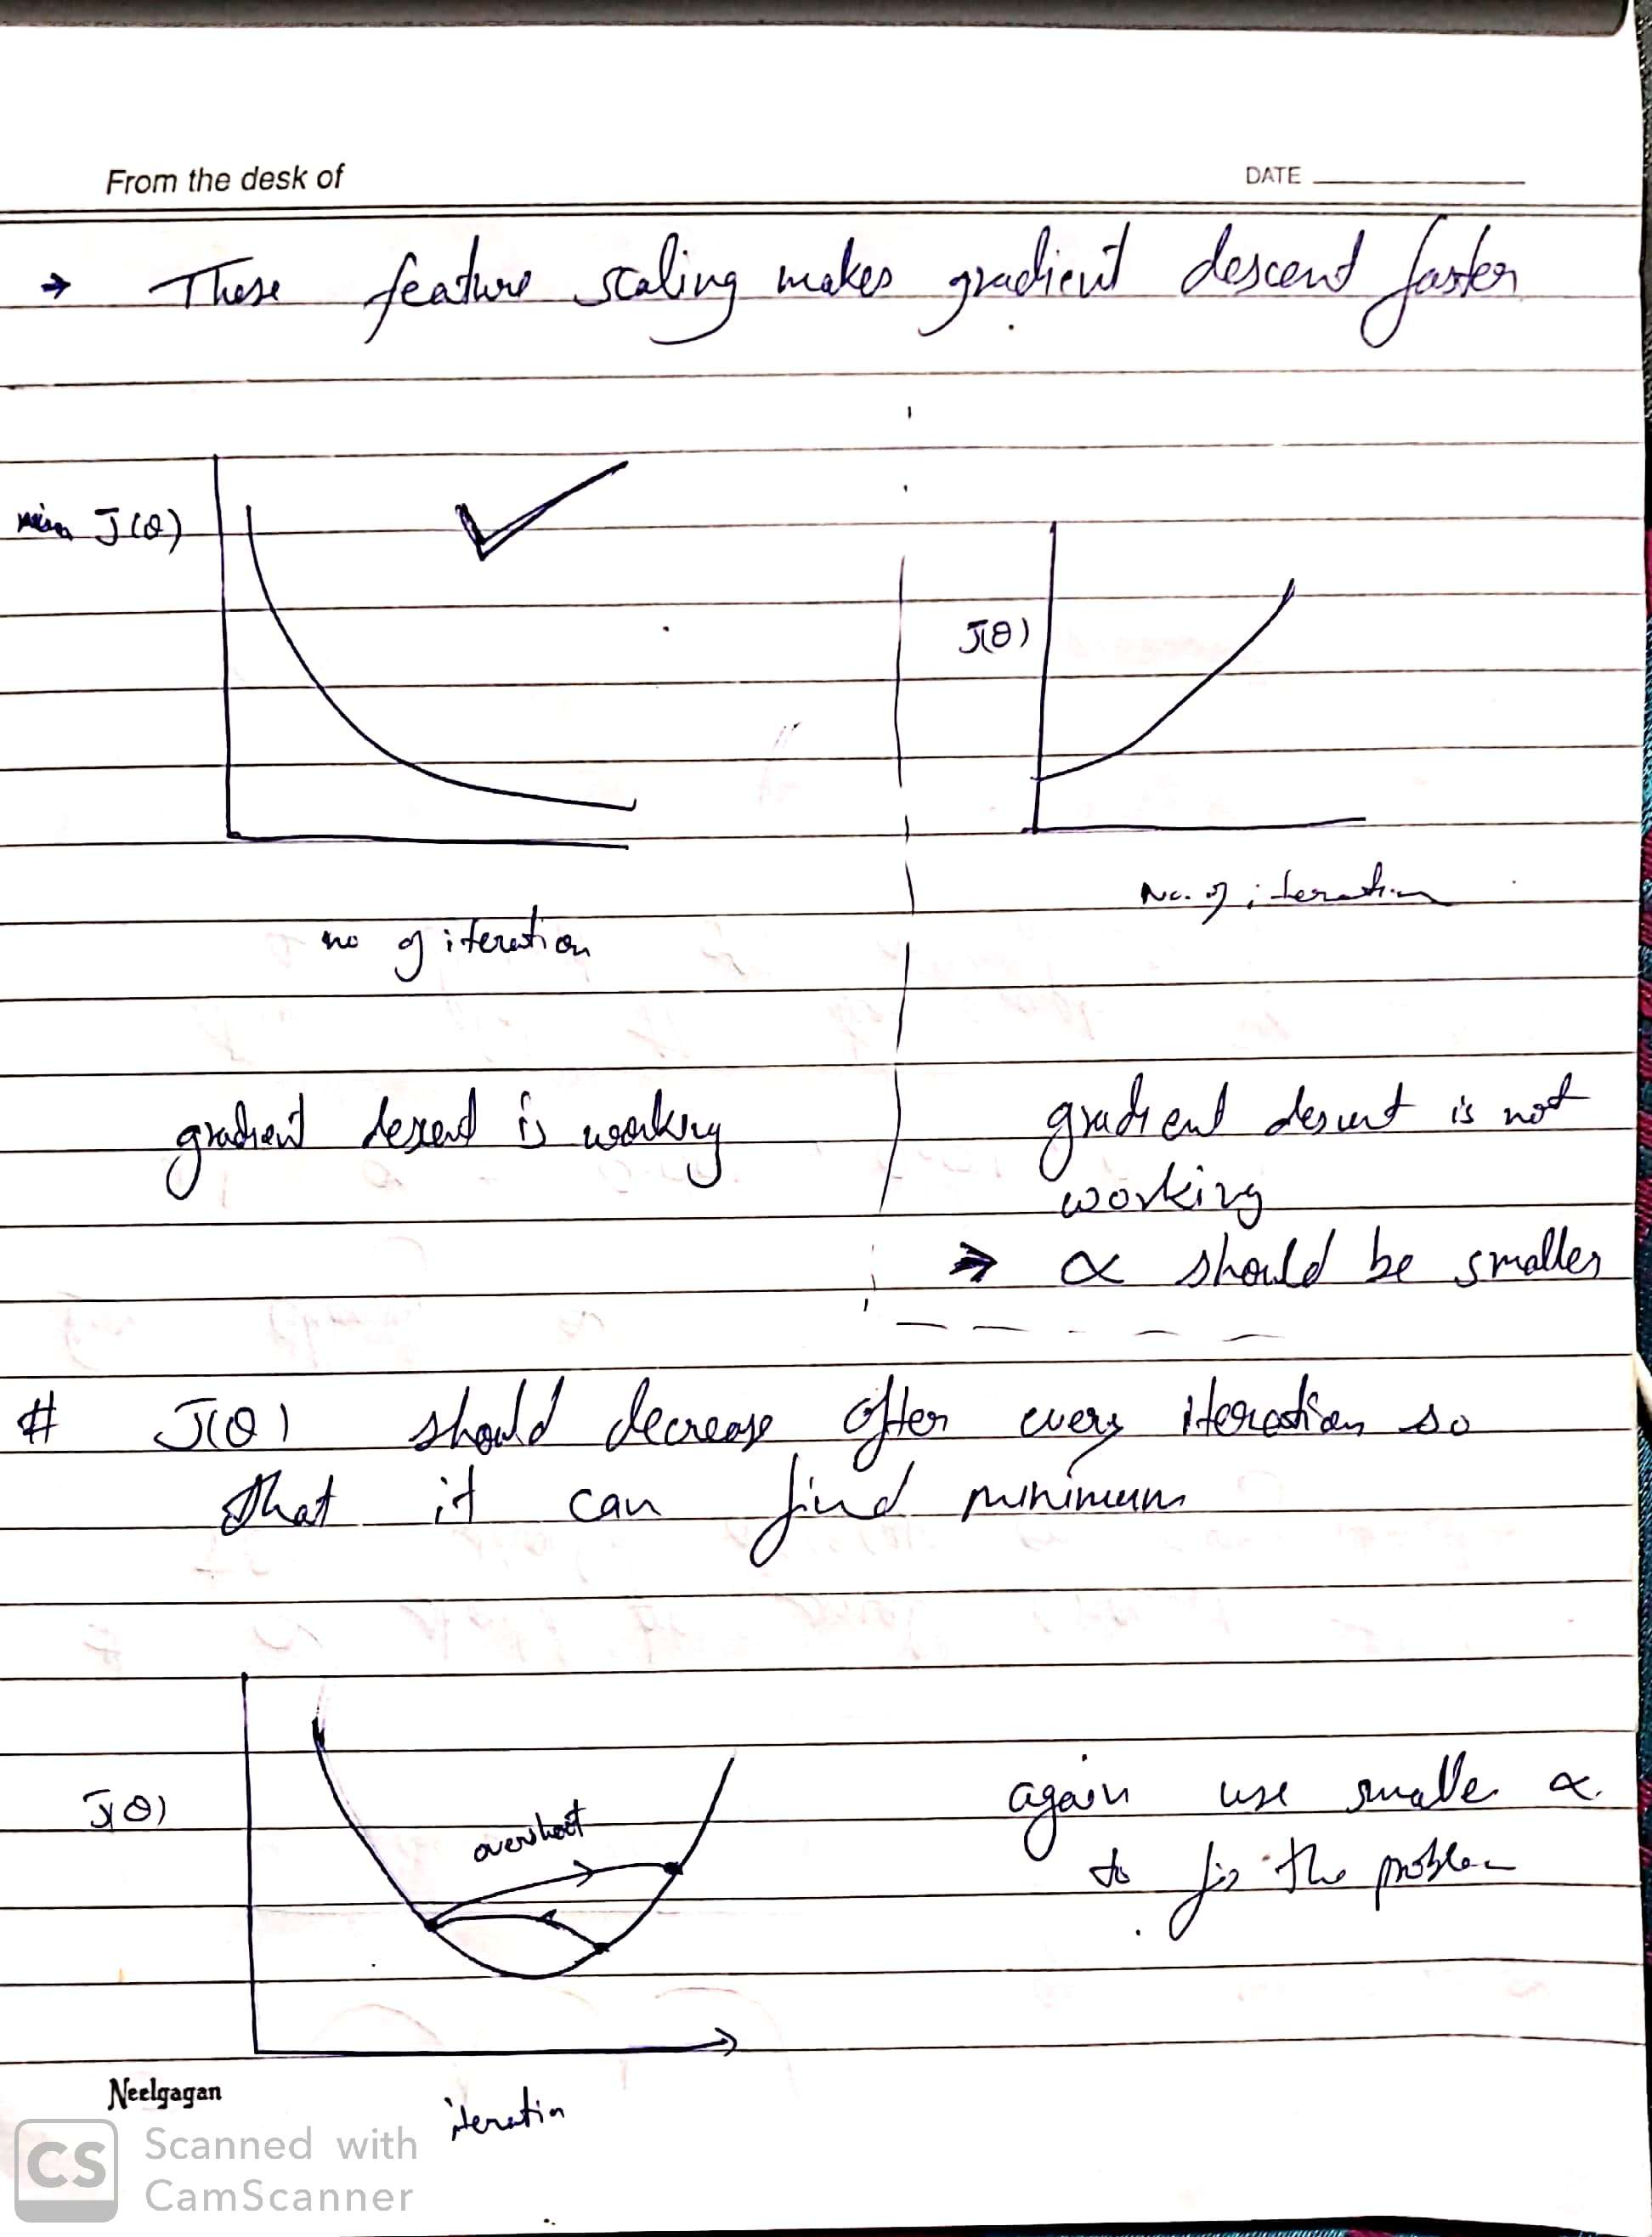 From the desk of
DATE
→ These feature scaling makes gradient descend faster
min J(θ)
J(θ)
no of iteration
No. of iteration
gradient descend is working
gradient descent is not
working
⇒ α should be smaller
# J(θ) should decrease after every iteration so
that it can find minimum
J(θ)
overshoot
again use smalle α.
to fix the problem
iteration
Neelgagan
CS Scanned with
CamScanner